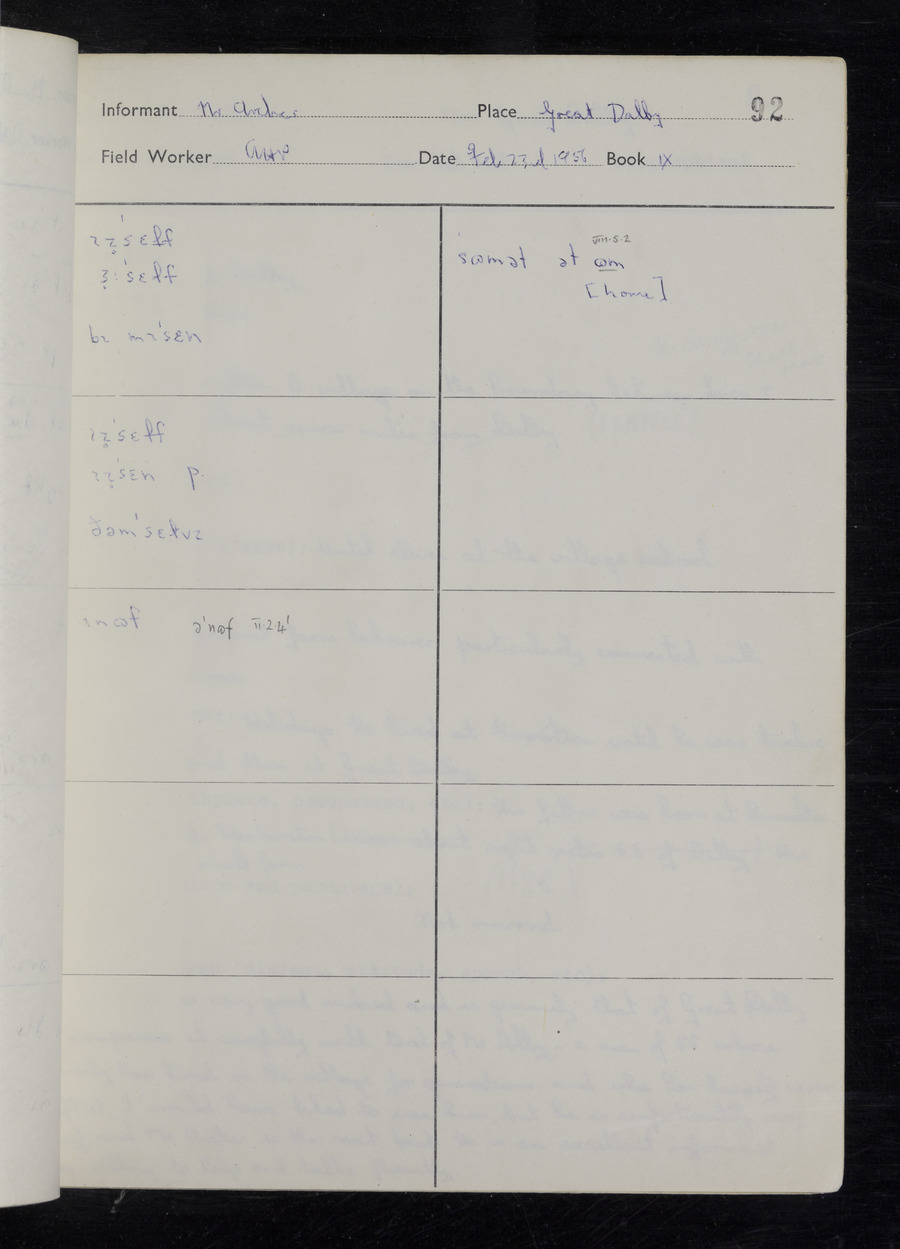 Informant Mr Place Great Dalby 92
Field Worker Date Feb 23rd 1956 Book IX
ɪz̩ˈsɛɫf
ɜ̣:ˈsɛɫf
bɪ mɪˈsɛn
ɪz̩ˈsɛɫf
ɪz̩ˈsɛn p.
ðəmˈsɛɫvz
ɪnɷf əˈnɷf II·2·4
VIII·5·2
ˈsɷmət ət ɷm
[home]